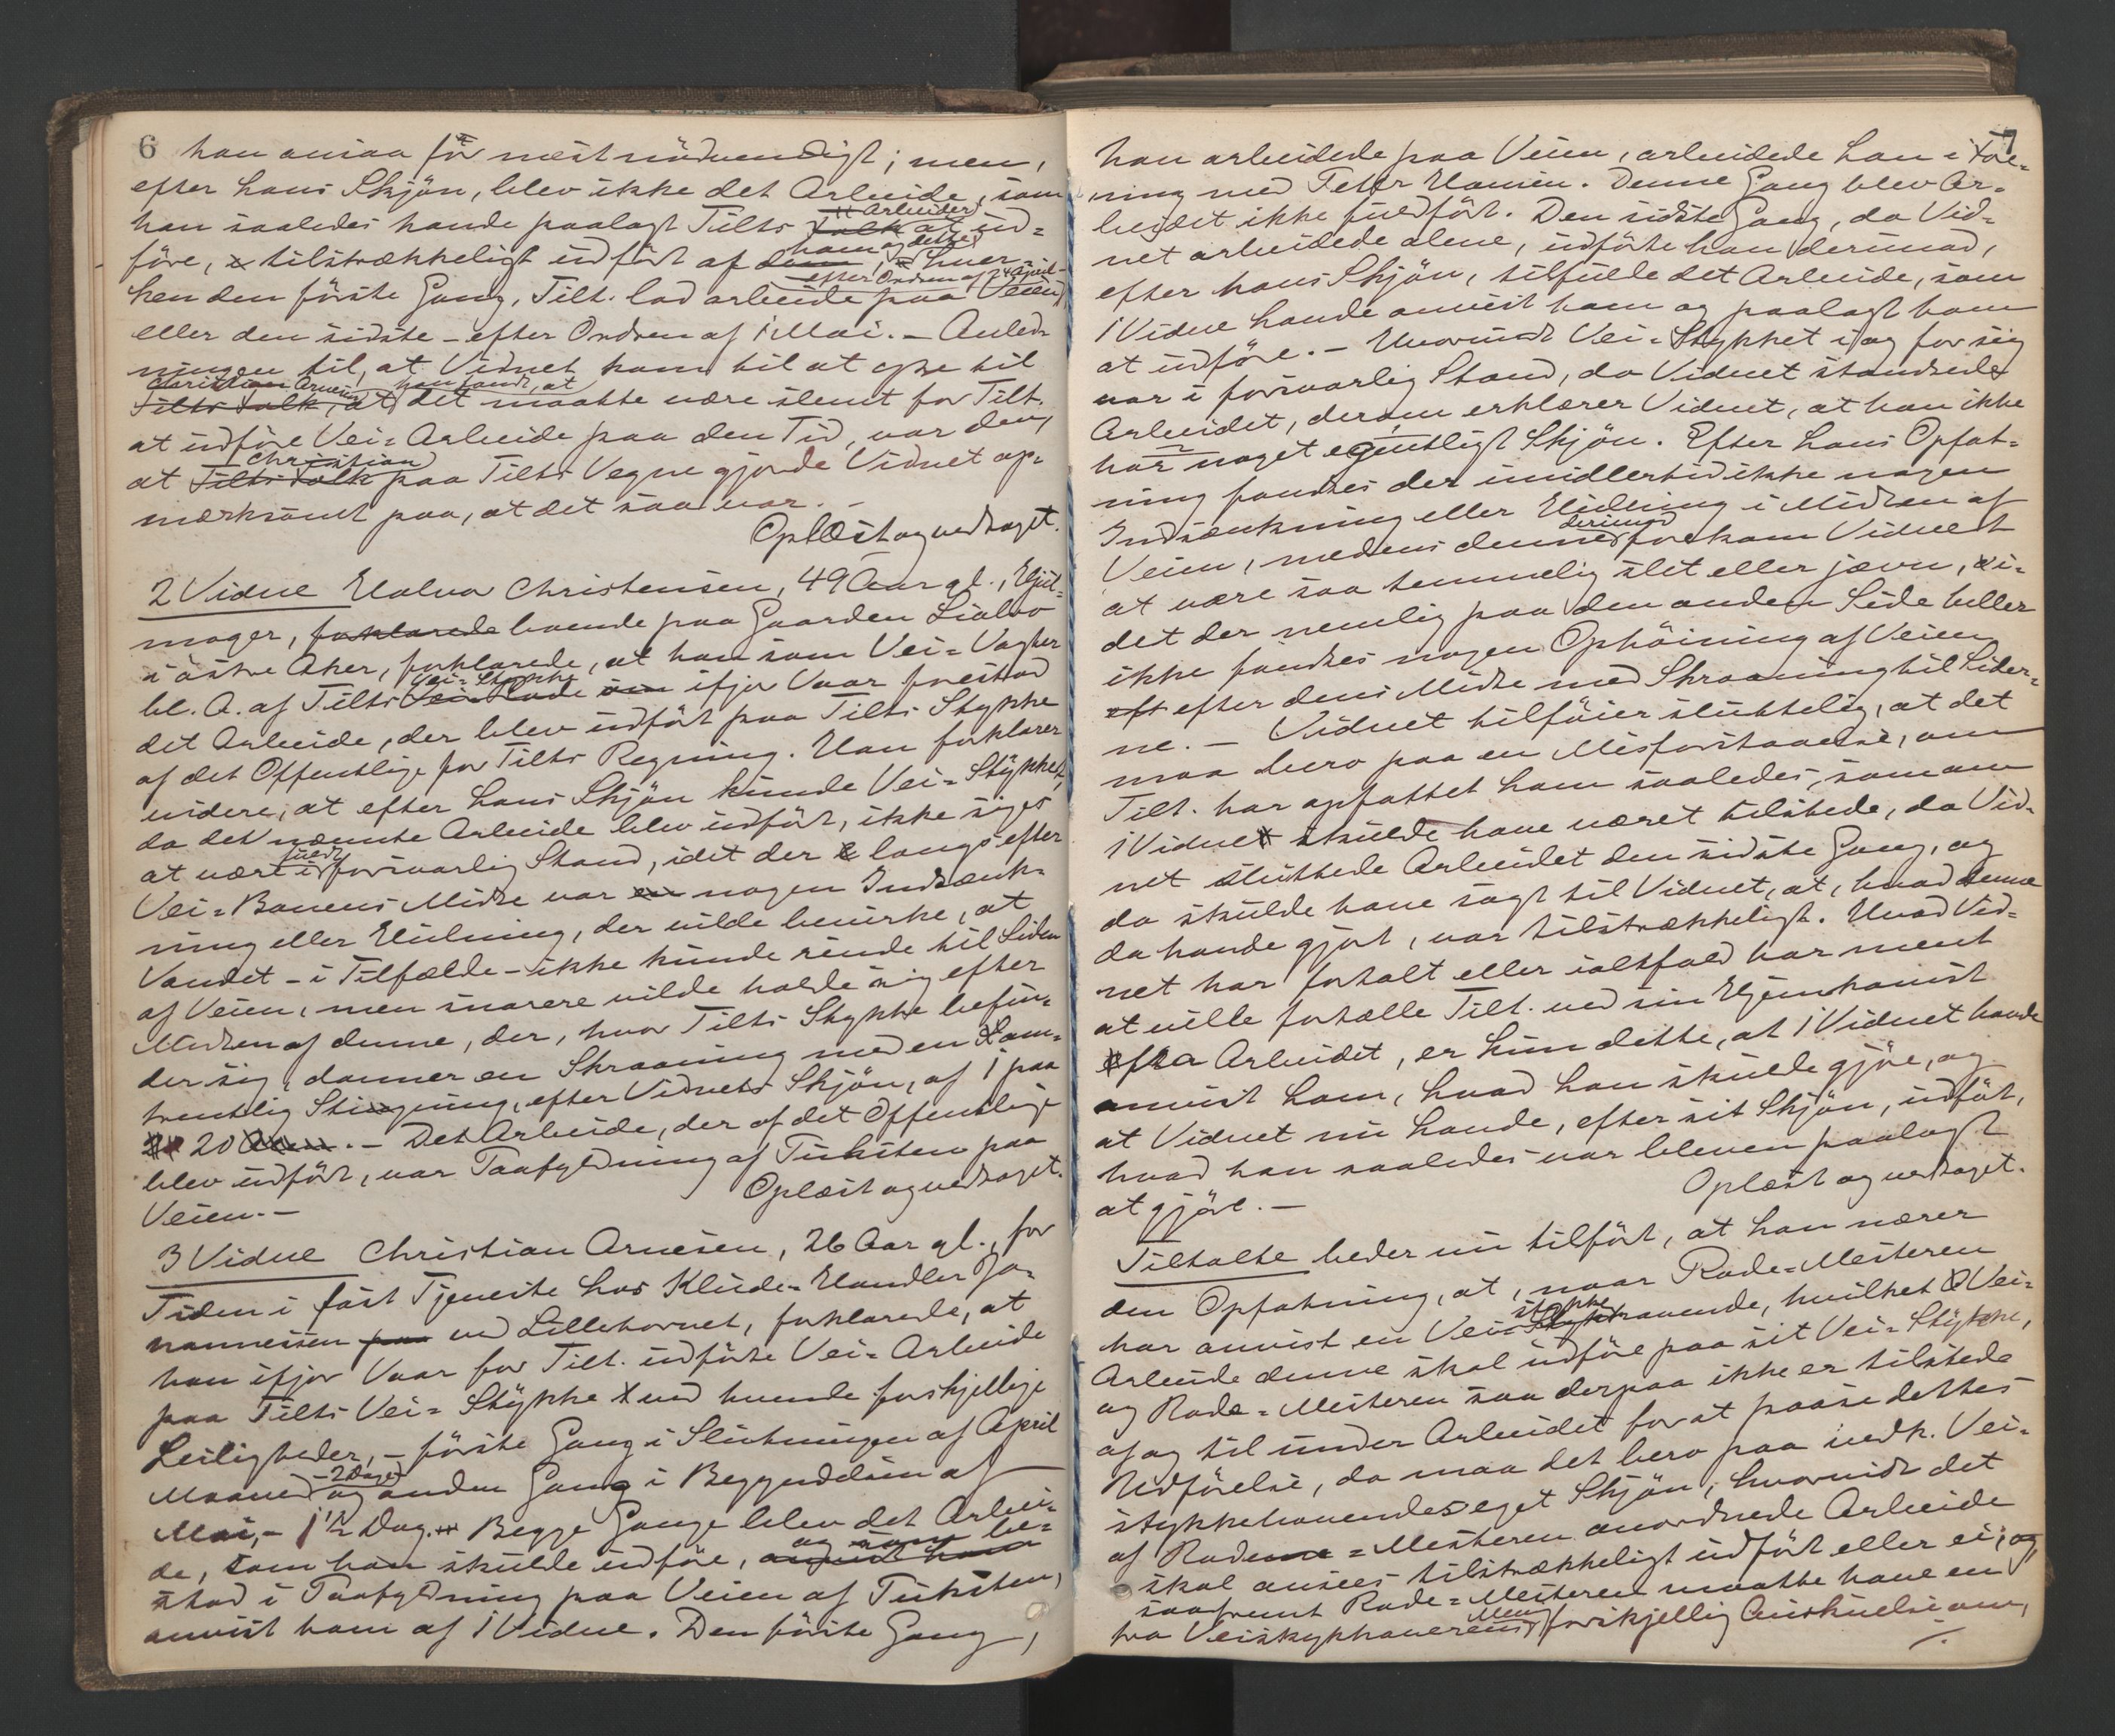 6 han ansaa för mest nödvendigt; men,
efter hans Skjön, blev ikke det Arbeide, som
han saaledes havde paalagt Tilts Arbeider at ud-
före, tilstrækkeligt udfört af ham og dette, hver-
ken den förste Gang, Tilt. lod arbeide paa Veien, efter Ordren af 24 April -
eller den sidste - efter Ordren af 1 Mai. - Anled-
ningen til, at Vidnet kom til at sige til
Christian Arnesen, at han fandt, at det maatte være slemt for Tilt.
at udföre Vei-Arbeide paa den Tid, var den,
at Christian paa Tilts Vegne gjorde Vidnet op-
mærksomt paa, at det saa var. -
Oplæst og vedtaget.
2 Vidne Halvor Christensen, 49 Aar gl., Hjul-
mager, forklarede boende paa Gaarden Liabro
i östre Aker, forklarede, at han som Vei-Vogter
bl. A. af Tilts Vei-Stykke ifjor Vaar forestod
det Arbeide, der blev udfört paa Tilts Stykke
af det Offentlige for Tilts Regning. Han forklarer
videre, at efter hans Skjön kunde Vei-Stykket,
da det nævnte Arbeide blev udfört, ikke siges
at være i fuldt forsvarlig Stand, idet der langs efter
Vei-Banens Midte var nogen Indsænk-
ning eller Huulning, der vilde bevirke, at
Vandet - i Tilfælde - ikke kunde rinde til Siden
af Veien, men snarere vilde holde sig efter
Midten af denne, der, hvor Tilts Stykke befin-
der sig, danner en Skraaning med en om-
trentlig Stigning, efter Vidnets Skjön, af 1 paa
20. - Det Arbeide, der af det Offentlige
blev udfört, var Paafyldning af Puksten paa
Veien. - Oplæst og vedtaget.
3 Vidne Christian Arnesen, 26 Aar gl., for
Tiden i fast Tjeneste hos Klude-Handler Jo-
hannessen ved Lilletorvet, forklarede, at
han ifjor Vaar for Tilt. udförte Vei-Arbeide
paa Tilts Vei-Stykke ved tvende forskjellige
Leiligheder, - förste Gang i Slutningen af April
Maaned - 2 Dage, og anden Gang i Begyndelsen af
Mai, - 1 1/2 Dag. Begge Gange blev det Arbei-
de, som han skulde udföre, og som be-
stod i Paafyldning paa Veien af Puksten,
anvist ham af 1 Vidne. Den förste Gang,
7
han arbeidede paa Veien, arbeidede han i For-
ning med Peter Hansen. Denne Gang blev Ar-
beidet ikke fuldfört. Den sidste Gang, da Vid-
net arbeidede alene, udförte han derimod,
efter hans Skjön, tilfulde det Arbeide, som
1 Vidne havde anvist ham og paalagt ham
at udföre. - Hvorvidt Vei-Stykket i og for sig
var i forsvarlig Stand, da Vidnet standsede
Arbeidet, derom erklærer Vidnet, at han ikke
har noget egentligt Skjön. Efter hans Opfat-
ning fandtes der imidlertid ikke nogen
Indsænkning eller Huulning i Midten af
Veien, medens denne derimod forekom Vidnet
at være saa temmelig slet eller jævn, i-
det der nemlig paa den anden Side heller
ikke fandtes nogen Ophöining af Veien
efter dens Midte med Skraaning til Sider-
ne. - Vidnet tilföier sluttelig, at det
maa bero paa en Misforstaaelse, om
Tilt. har opfattet ham saaledes, som om
1 Vidne skulde have været tilstede, da Vid-
net sluttede Arbeidet den sidste Gang, og
da skulde have sagt til Vidnet, at, hvad denne
da havde gjort, var tilstrækkeligt. Hvad Vid-
net har fortalt eller ialtfald har ment
at ville fortælle Tilt. ved sin Hjemkomst
efter Arbeidet, er kun dette, at 1 Vidnet havde
anvist ham, hvad han skulde gjöre, og
at Vidnet nu havde, efter sit Skjön, udfört,
hvad han saaledes var bleven paalagt
at gjöre. - Oplæst og vedtaget.
Tiltalte beder nu tilfört, at han nærer
den Opfatning, at, naar Rode-Mesteren
har anvist en Vei-stykkehavende, hvilket Vei-
Arbeide denne skal udföre paa sit Vei-Stykke,
og Rode-Mesteren saa derpaa ikke er tilstede
af og til under Arbeidet for at paase dettes
Udförelse, da maa det bero paa vedk. Vei-
stykkehavendes eget Skjön, hvorvidt det
af Rode-Mesteren anordnede Arbeide
skal ansees tilstrækkeligt udfört eller ei; og,
saafremt Rode-Mesteren maatte have en
fra Veistykkehaverens Mening forskjellig Anskuelse om,